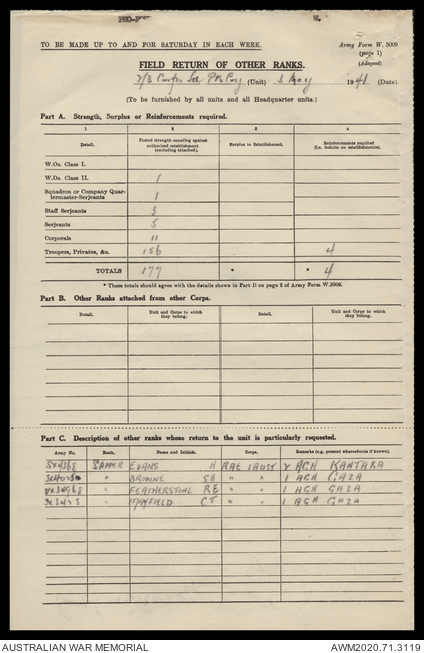 TO BE MADE UP TO AND FOR SATURDAY IN EACH WEEK.
Army Form W. 3009
(page 1)
(Adapted)
FIELD RETURN OF OTHER RANKS.
2/3 Corps Fd Pk Coy (Unit) 3 May 1941 (Date).
(To be furnished by all units and all Headquarter units.)
Part A. Strength, Surplus or Reinforcements required.
1 2 3 4
Detail. Posted strength counting against authorized establishment (excluding attached). Surplus to Establishment. Reinforcements required (i.e. deficits on establishment).
W.On. Class I.
W.On. Class II. 1
Squadron or Company Quar-
termaster-Serjeants 1
Staff Serjeants 3
Serjeants 5
Corporals 11
Troopers, Privates, &c. 156 4
TOTALS 177 * * 4
* These totals should agree with the details shown in Part D on page 2 of Army Form W.3009.
Part B. Other Ranks attached from other Corps.
Detail. Unit and Corps to which they belong. Detail. Unit and Corps to which they belong.
Part C. Description of other ranks whose return to the unit is particularly requested.
Army No. Rank. Name and Initials. Corps. Remarks (e.g. present whereabouts if known).
SAPPER EVANS H RAE 1 AUST 2 AGH KANTARA
" BROWNE SH " " 1 AGH GAZA
" FEATHERSTONE RE " " 1 AGH GAZA
" CT " " 1 AGH GAZA
AUSTRALIAN WAR MEMORIAL
AWM2020.71.3119